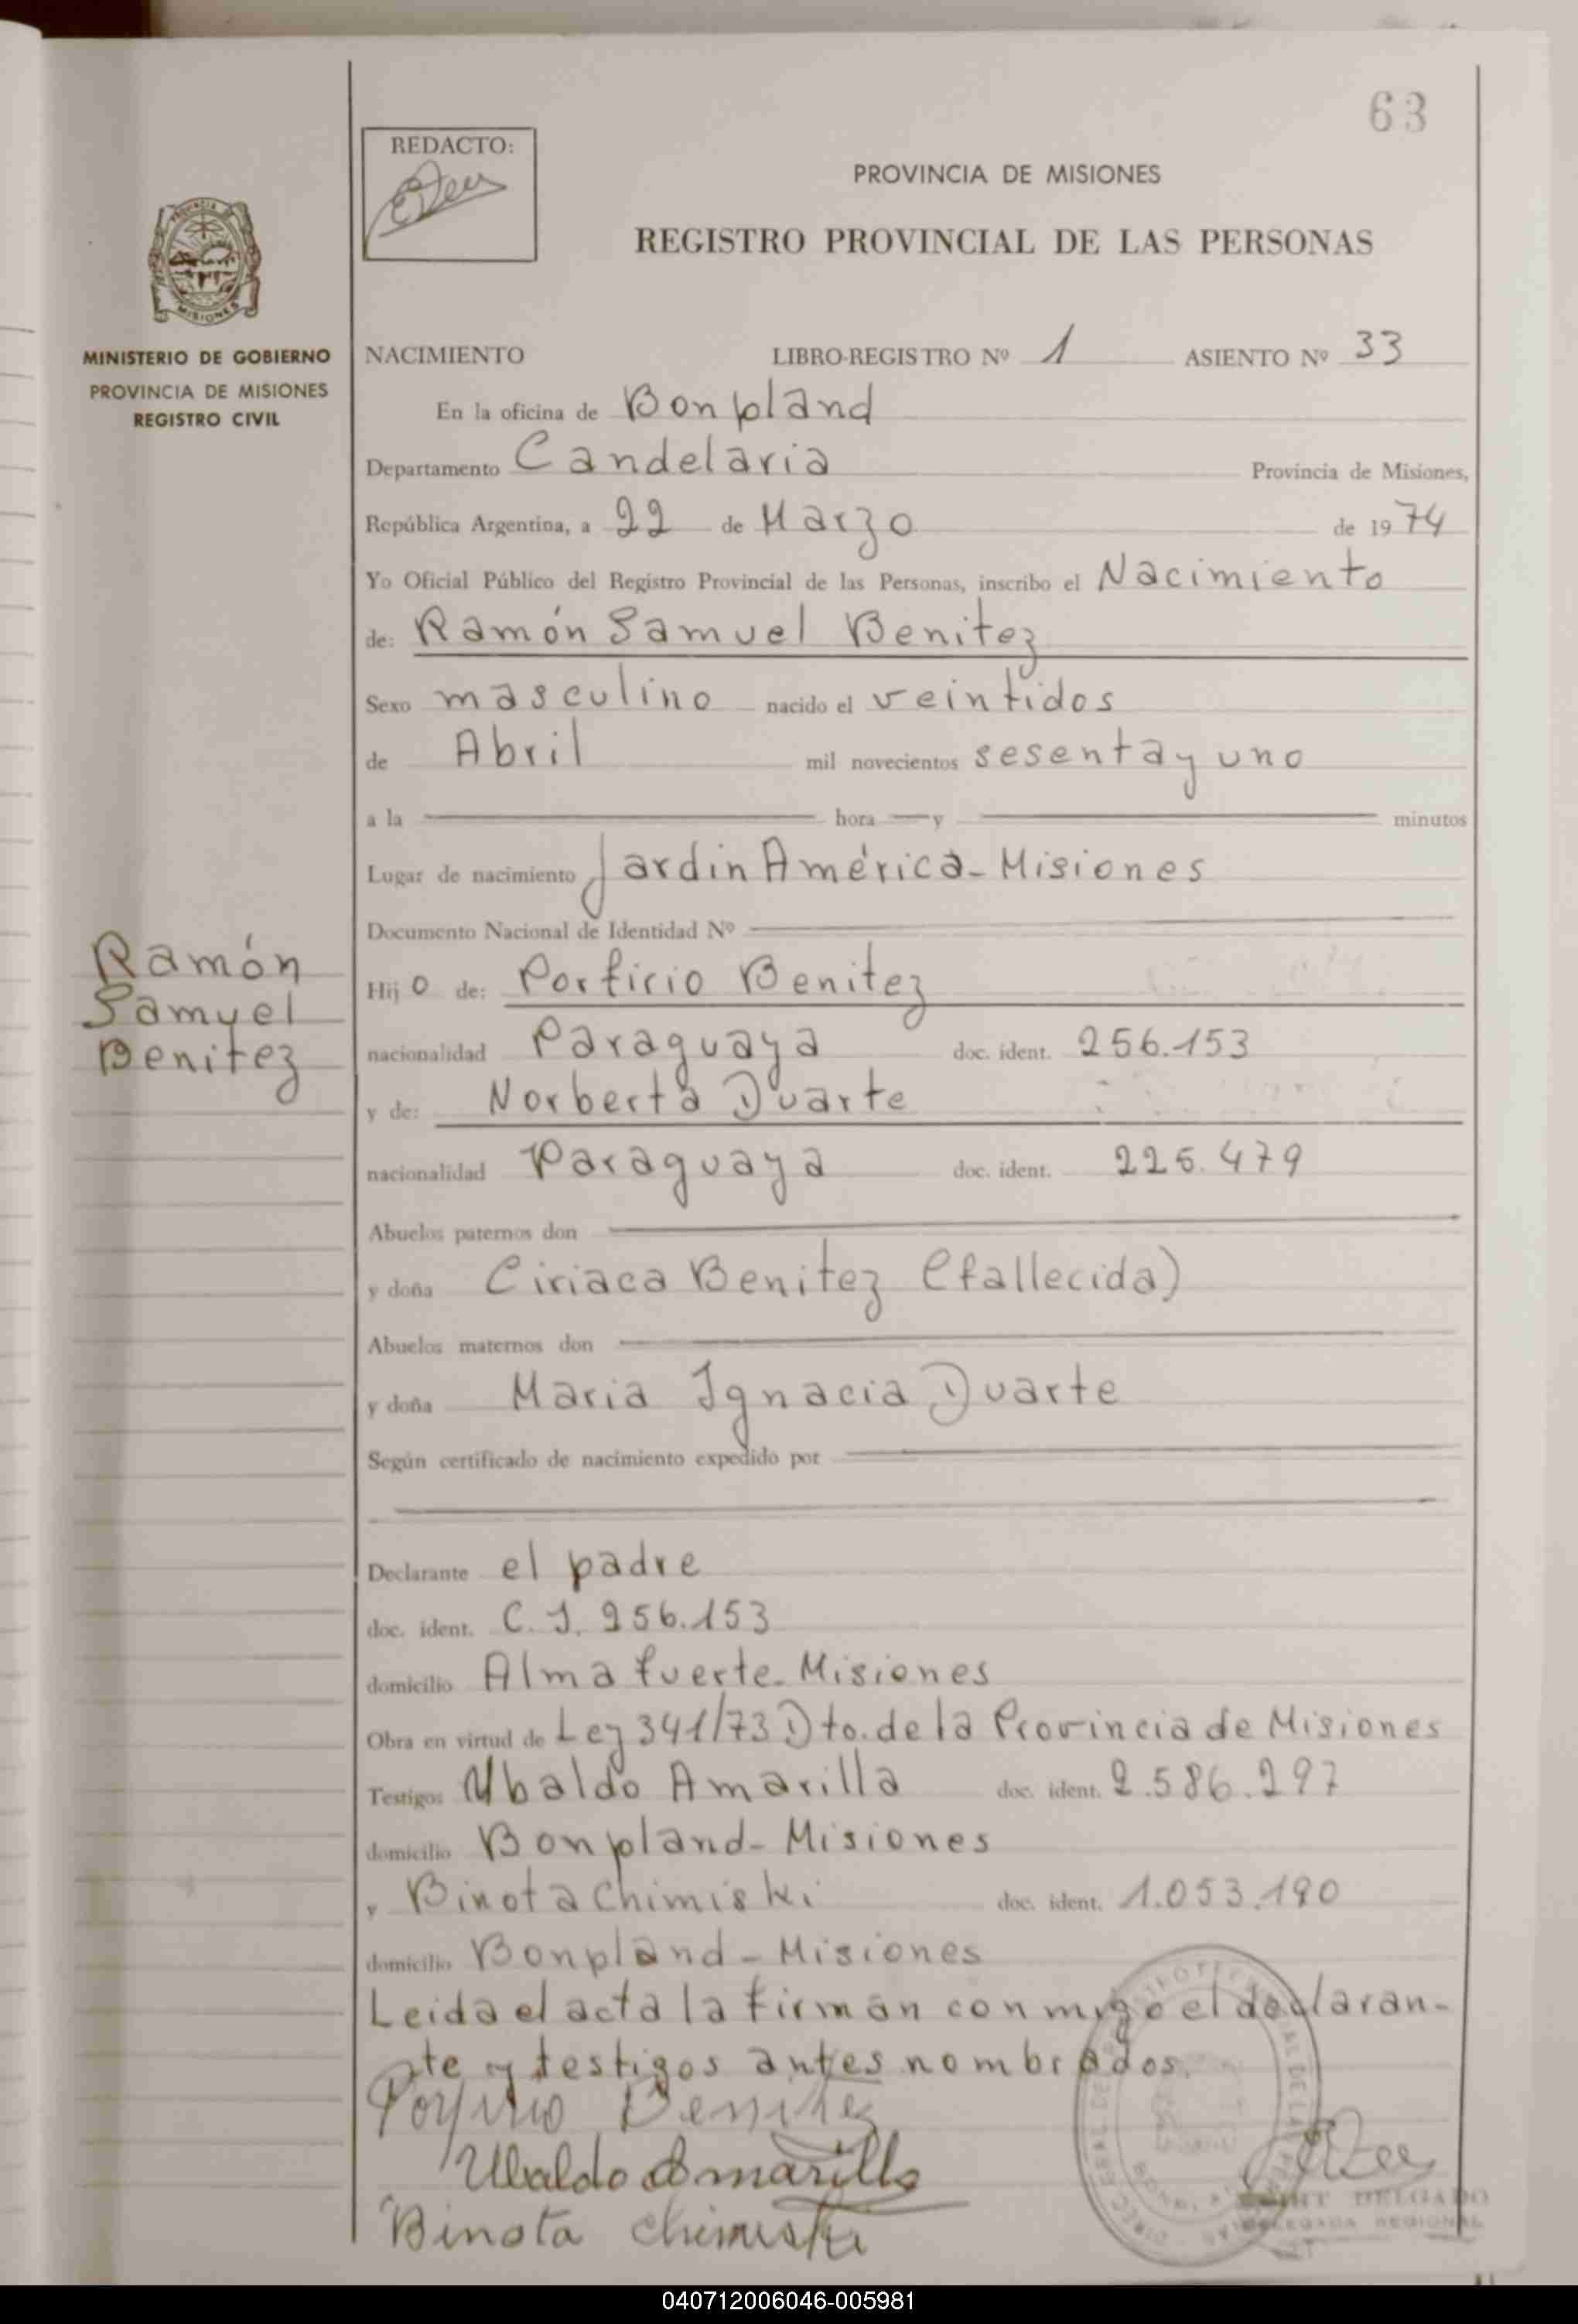 63
REDACTO:
PROVINCIA DE MISIONES
REGISTRO PROVINCIAL DE LAS PERSONAS
MISIONES
MINISTERIO DE GOBIERNO
PROVINCIA DE MISIONES
REGISTRO CIVIL
NACIMIENTO LIBRO-REGISTRO Nº 1 ASIENTO Nº 33
En la oficina de Bonpland
Departamento Candelaria Provincia de Misiones,
República Argentina, a 22 de Marzo de 1974
Yo Oficial Público del Registro Provincial de las Personas, inscribo el Nacimiento
de: Ramón Samuel Benitez
Sexo masculino nacido el veintidos
de Abril mil novecientos sesenta y uno
a la hora y minutos
Lugar de nacimiento Jardin América - Misiones
Documento Nacional de Identidad Nº
Ramón
Samuel
Benitez
Hijo de: Porficio Benitez
nacionalidad Paraguaya doc. ident. 256.153
y de: Norberta Duarte
nacionalidad Paraguaya doc. ident. 225.479
Abuelos paternos don
y doña Ciriaca Benitez (fallecida)
Abuelos maternos don
y doña Maria Ignacia Duarte
Según certificado de nacimiento expedido por
Declarante el padre
doc. ident. C.I. 256.153
domicilio Alma fuerte - Misiones
Obra en virtud de Ley 341/73 Dto. de la Provincia de Misiones
Testigos Ubaldo Amarilla doc. ident. 2.586.297
domicilio Bonpland - Misiones
y Binota Chimiski doc. ident. 1.053.190
domicilio Bonpland - Misiones
Leida el acta la firman conmigo el declaran-
te y testigos antes nombrados.
Porfirio Benitez
Ubaldo Amarilla
Binota Chimiski
DELGADO
DELEGADA REGIONAL
040712006046-005981